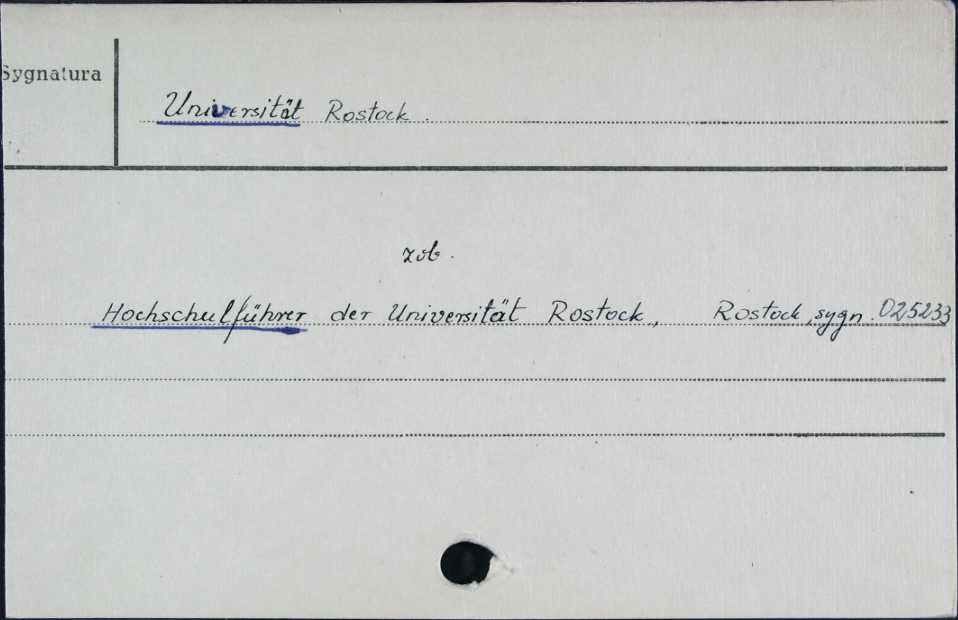 Sygnatura
Universität Rostock.
zob.
Hochschulführer der Universität Rostock, Rostock, sygn. 025233